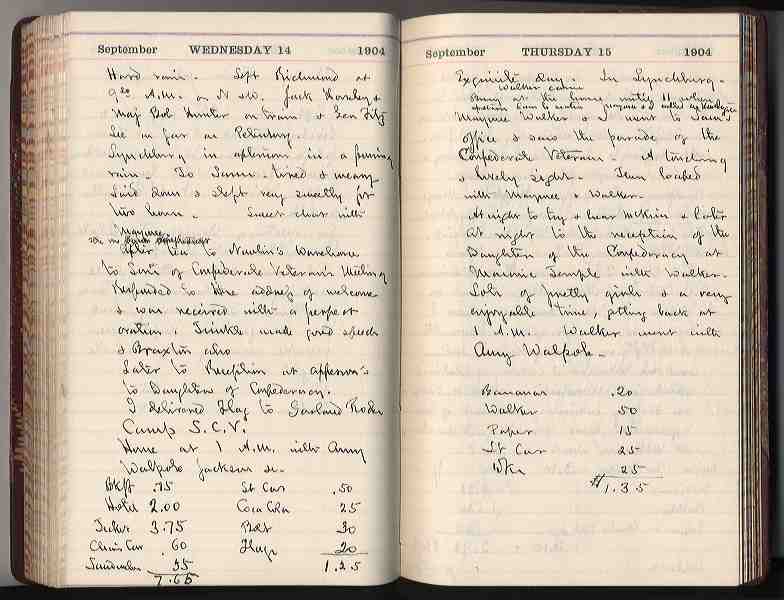 September WEDNESDAY 14 1904
Hard rain. Left Richmond at
A.M. on N & W. Jack Horsley &
Maj Bob Hunter on train & Gen Fitz
Lee as far as Petersburg.
Lynchburg in afternoon in a pouring
rain. To Sam's. tired & weary
Laid down & slept very sweetly for
two hours. Sweet chat with
Maymie.
After tea to Nowlin's Warehouse
to Sons of Confederate Veterans Meeting
Responded to the address of welcome
& was received with a perfect
ovation. Trinkle made good speech
& Braxton also
Later to Reception at
to Daughters of Confederacy.
I delivered Flag to Garland Rodes
Camp S.C.V.
Home at 1 A.M. with Amy
Walpole Jackson St.
Bkft .75 St Car .50
Hotel 2.00 Coca Cola 25
Ticket 3.75 30
Chair Car .60 Flag 20
55 1.25
7.65
September THURSDAY 15 1904
Exquisite day. In Lynchburg.
Walker came
at the home until 11 when
Maymie Walker & I went to Sam's
office & saw the parade of the
Confederate Veterans. A touching
& lovely sight. Then loafed
with Maymie & Walker.
At night to tea & hear McKim & later
at night to the reception of the
Daughters of the Confederacy at
Masonic Temple with Walker.
Lots of pretty girls & a very
enjoyable time, getting back at
1 A.M. Walker went with
Amy Walpole.
Bananas .20
Walker 50
Paper 15
St Car 25
25
$1.35